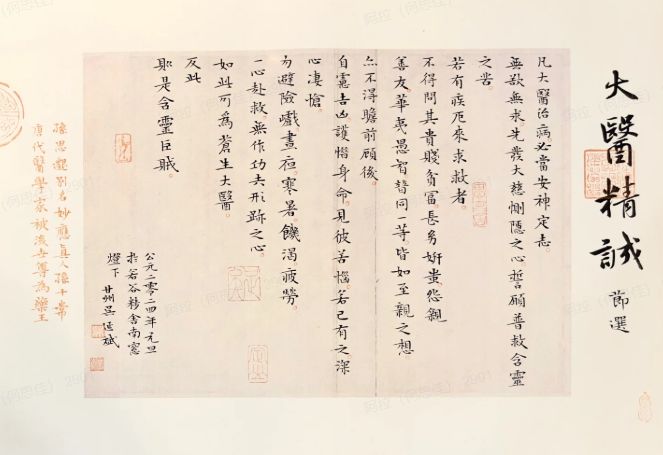 大醫精誠
節選
凡大醫治病必當安神定志。
無欲無求。先發大慈惻隱之心誓願普救含靈
之苦。
若有疾厄來求救者。
不得問其貴賤貧富。長幼妍蚩怨親
善友。華夷愚智普同一等。皆如至親之想
亦不得瞻前顧後。
自慮吉凶護惜身命。見彼苦惱。若己有之深
心凄愴
勿避險戲晝夜。寒暑。饑渴疲勞。
一心赴救。無作功夫形跡之心。
如此可為蒼生大醫。
反此
則是含靈巨賊。
公元二零二四年元旦
若谷 舍南窗
燈下 甘州吳 斌
孫思邈別名妙應真人孫十常
唐代醫學家被後世尊為藥王
阿拉 (何思佳) 2901